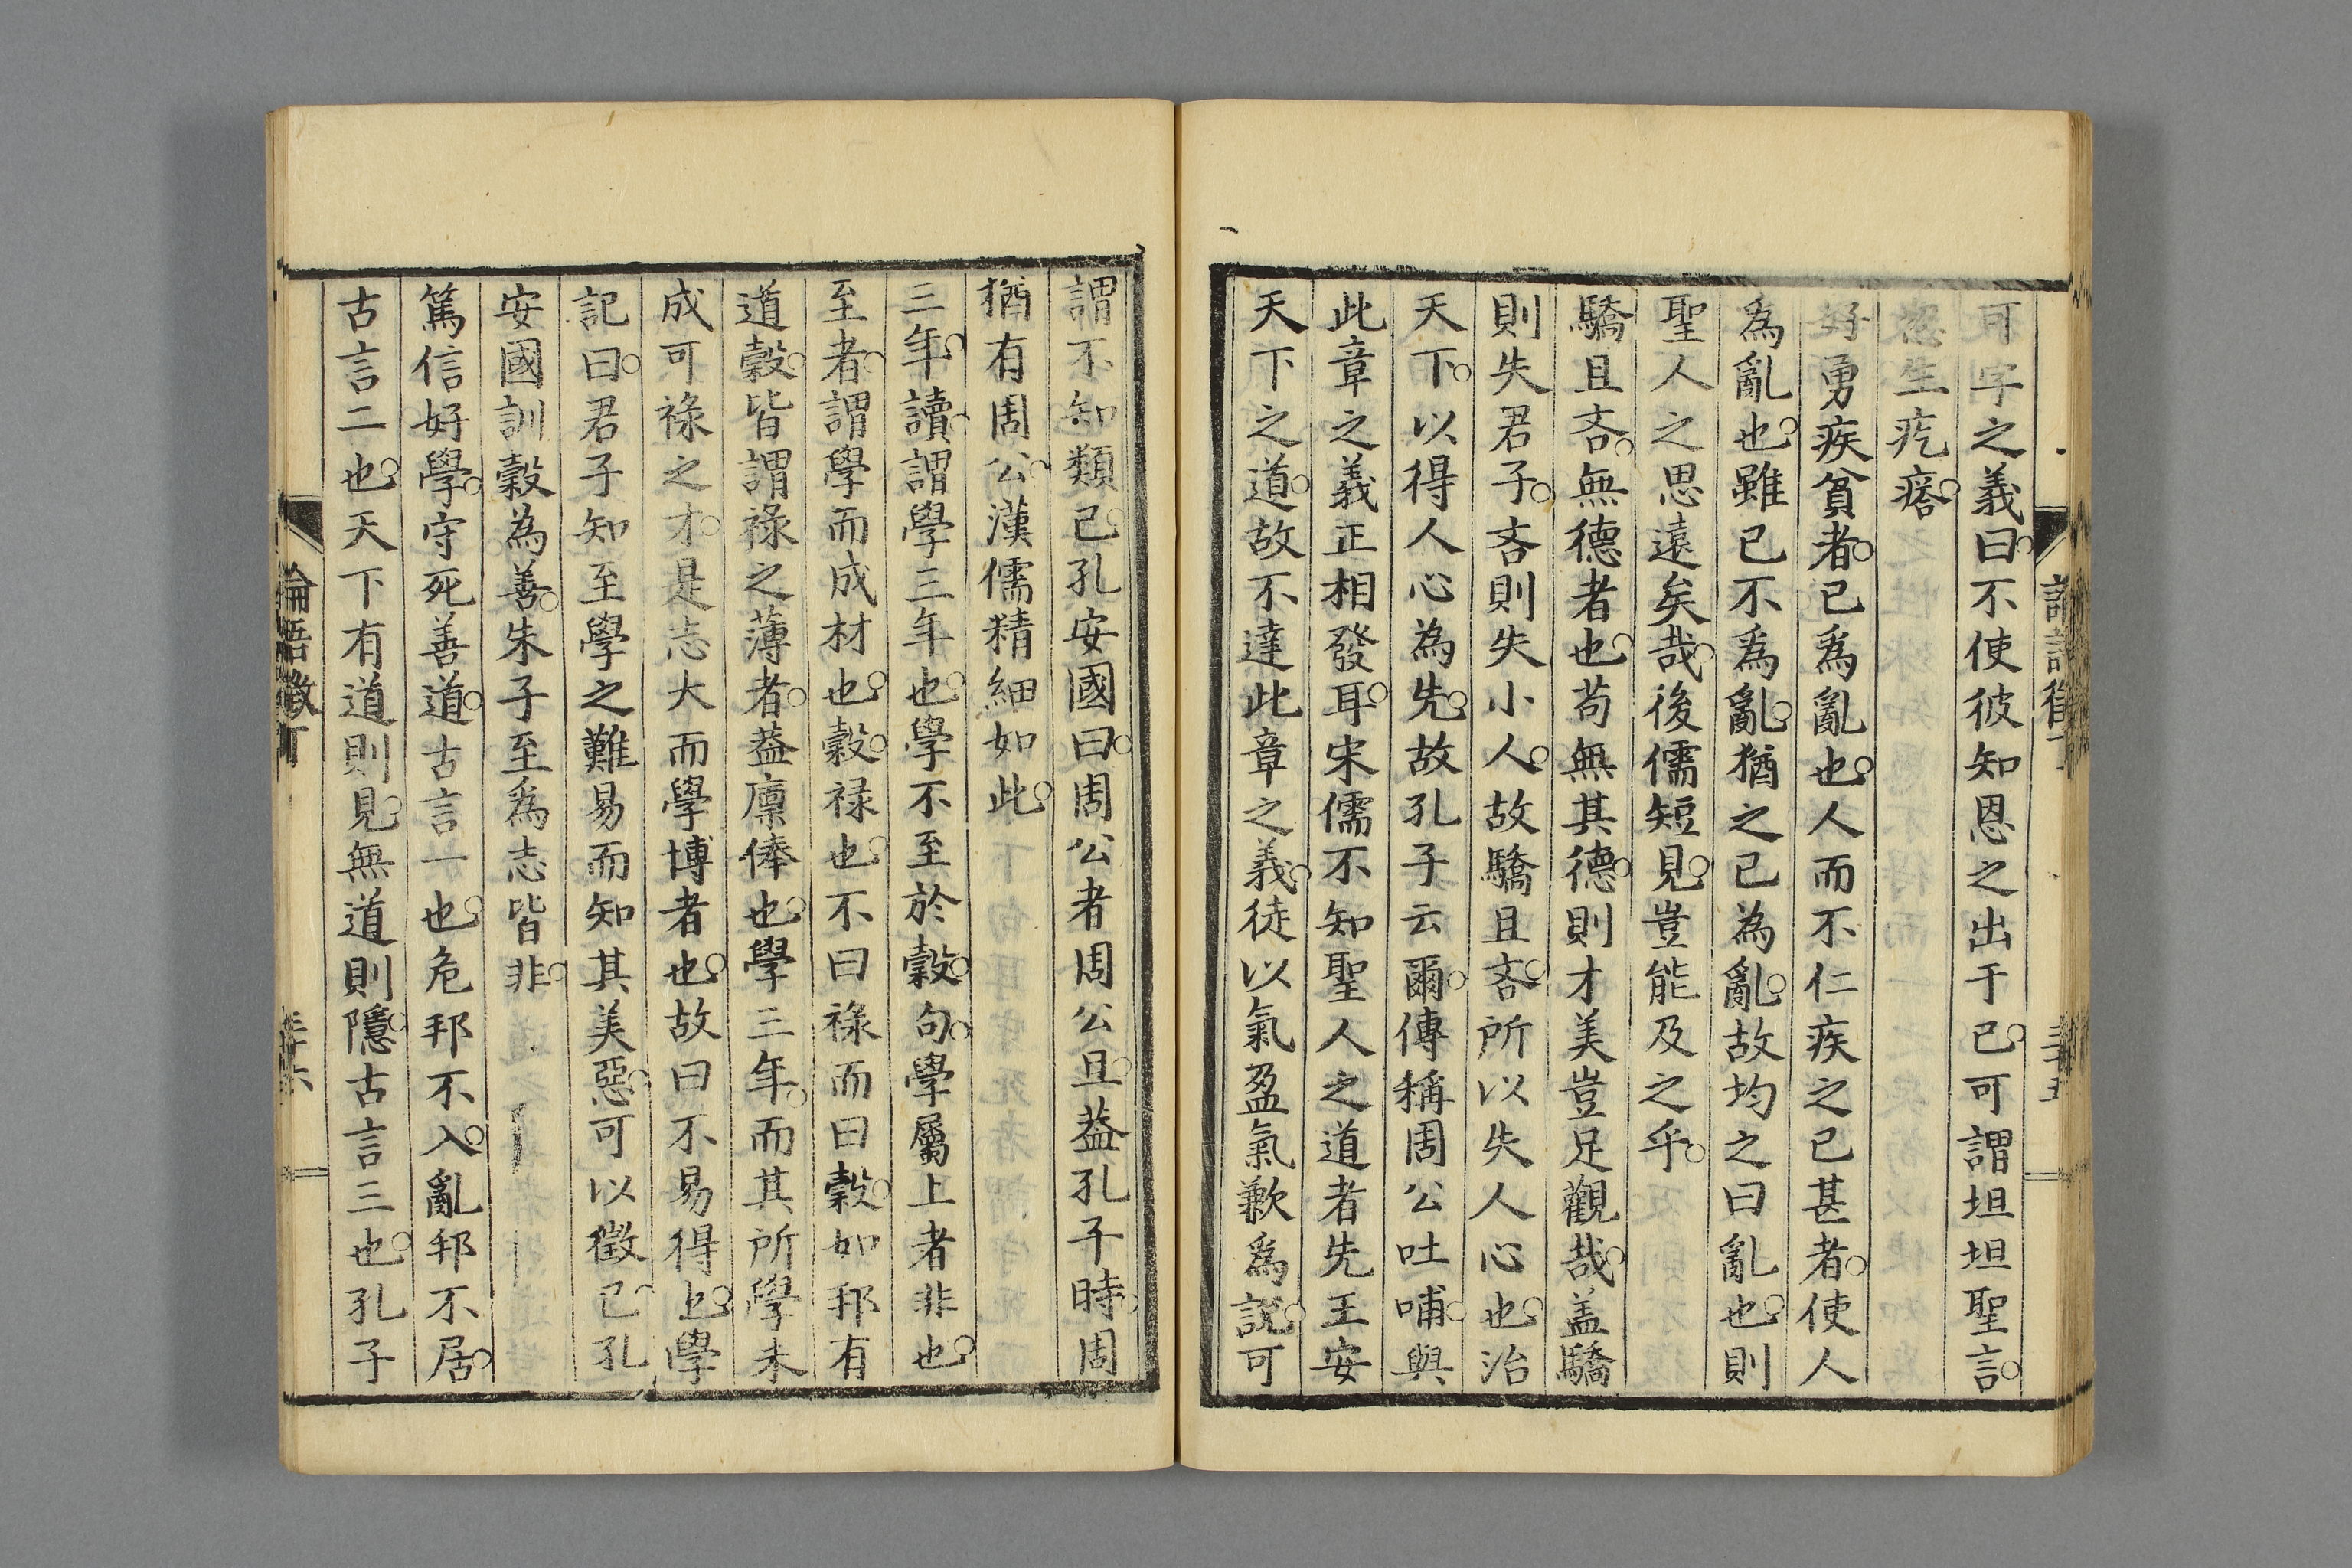 可字之義曰不使彼知恩之出于己可謂坦坦聖言
忽生疙瘩
好勇疾貧者己爲亂也人而不仁疾之已甚者使人
爲亂也雖已不爲亂猶之已為亂故均之曰亂也則
聖人之思遠矣哉後儒短見豈能及之乎
驕且吝無德者也苟無其德則才美豈足觀哉盖驕
則失君子吝則失小人故驕且吝所以失人心也治
天下以得人心為先故孔子云爾傳稱周公吐哺與
此章之義正相發耳宋儒不知聖人之道者先王安
天下之道故不達此章之義徒以氣盈氣歉爲說可
謂不知類已孔安國曰周公者周公旦葢孔子時周
猶有周公漢儒精細如此
三年讀謂學三年也學不至於穀句學屬上者非也
至者謂學而成材也穀祿也不曰祿而曰穀如邦有
道穀皆謂祿之薄者葢廩俸也學三年而其所學未
成可祿之才是志大而學博者也故曰不易得也學
記曰君子知至學之難易而知其美惡可以徵已孔
安國訓穀為善朱子至爲志皆非
篤信好學守死善道古言一也危邦不入亂邦不居
古言二也天下有道則見無道則隱古言三也孔子
論語徵丁